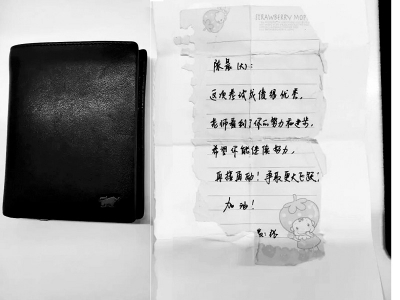 STRAWBERRY MOR
陈晨(大):
这次考试成绩很优秀,
老师看到了你的努力和进步,
希望你能继续努力,
再接再励!争取更大飞跃!
加油!